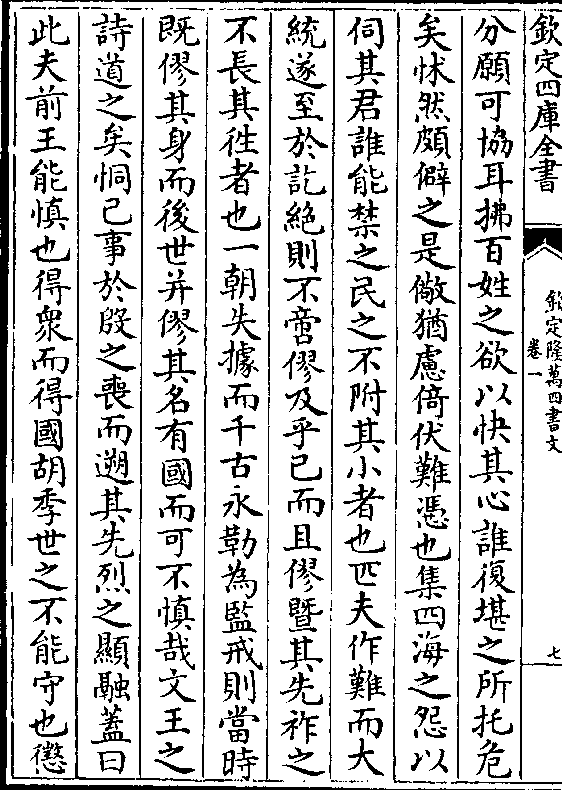 欽定四庫全書
欽定隆萬四書文
卷一
七
分願可協耳拂百姓之欲以快其心誰復堪之所托危
矣怵然頗僻之是儆猶慮倚伏難憑也集四海之怨以
伺其君誰能禁之民之不附其小者也匹夫作難而大
統遂至於訖絶則不啻僇及乎己而且僇暨其先祚之
不長其徃者也一朝失據而千古永勒為監戒則當時
既僇其身而後世并僇其名有國而可不慎哉文王之
詩道之矣恫已事於殷之喪而遡其先烈之顯融蓋曰
此夫前王能慎也得衆而得國胡季世之不能守也懲